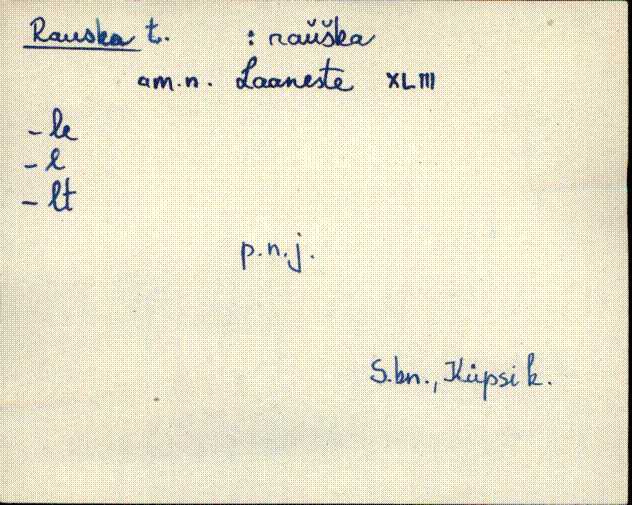 Rauska t. : raŭška
am.n. Laaneste XLIII
- le
- l
- lt
p.n.j.
S.kn., Küpsi k.